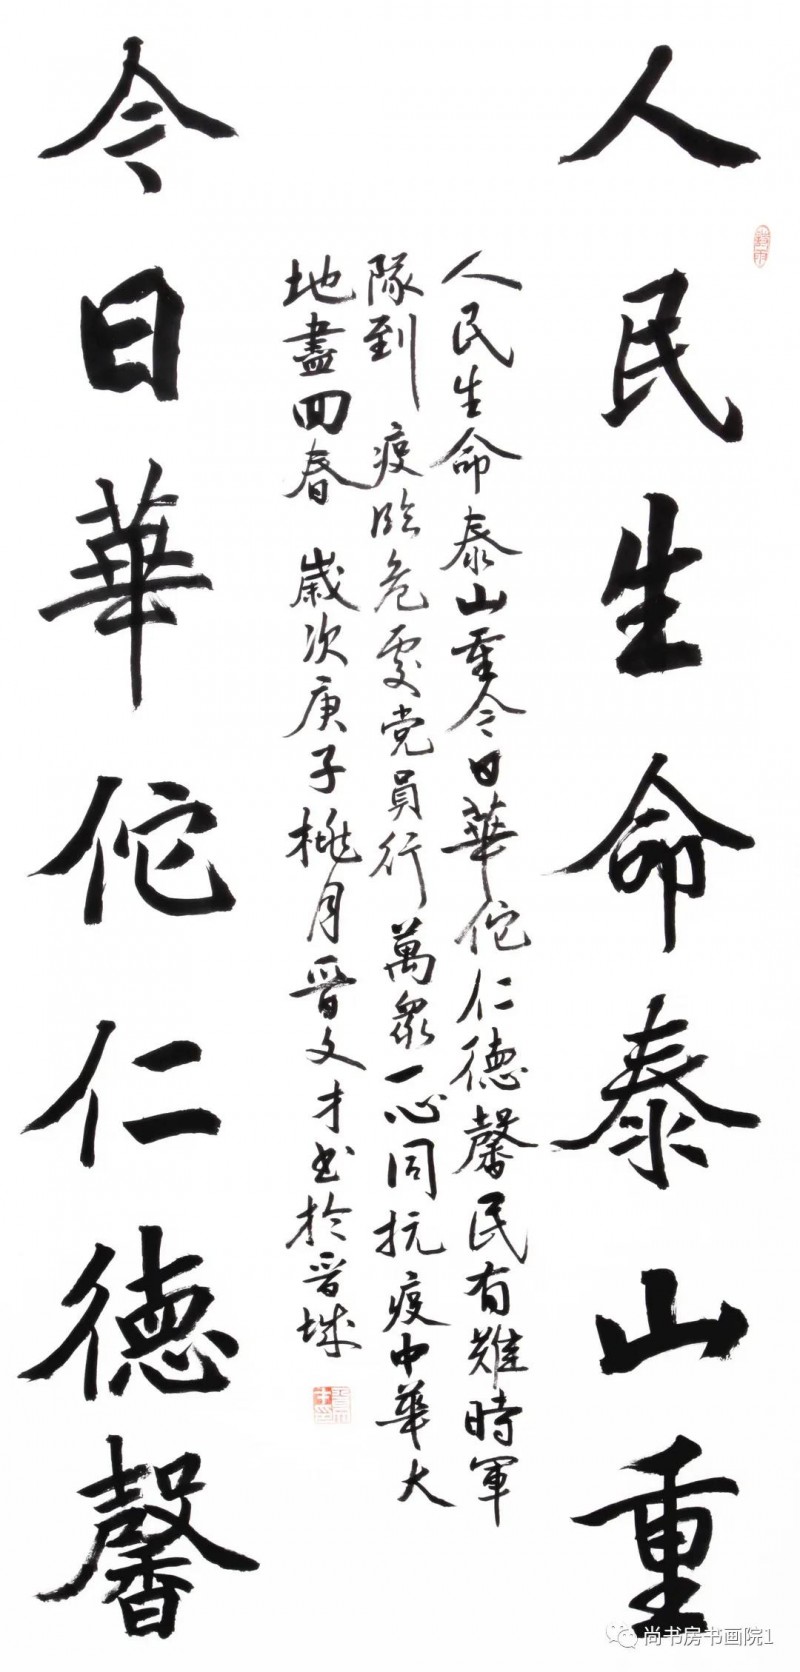 人民生命泰山重
人民生命泰山重令日華佗仁德馨民有難時軍
隊到疫臨危處党員行萬衆一心同抗疫中華大
地盡回春 歲次庚子桃月晉文才书於晉城
令日華佗仁德馨
尚书房书画院1